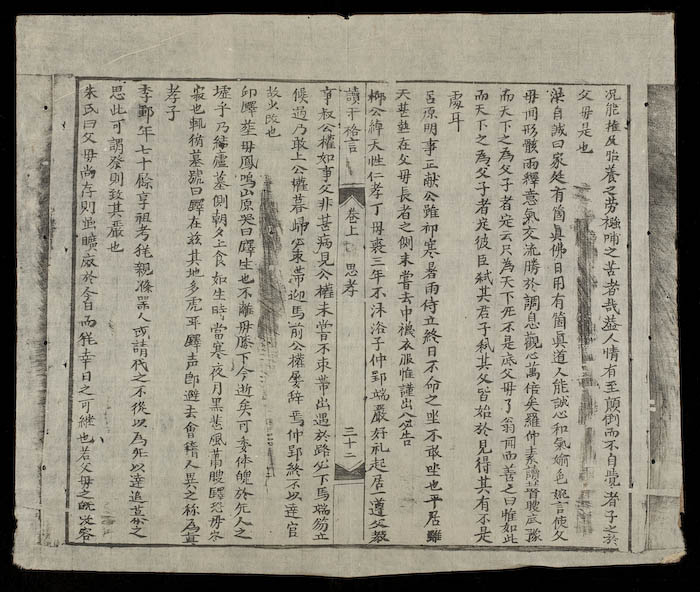 況能推反哺養之劳極哺之苦者哉益人情有至顛倒而不自覺者子之於
父母是也
渠自誠曰家庭有箇眞佛日用有箇眞道人能誠心和氣愉色婉言使父
母間形骸而釋意氣交流勝於調息觀心萬倍矣羅仲素讀瞽瞍底豫
而天下之為父子者定云只為天下無不是底父母了翁聞而善之曰惟如此
而天下之為父子者定彼臣弑其君子弑其父皆始於見得其有不是
處耳
呂原明事正献公雖祁寒暑雨侍立終日不命之坐不敢坐也平居雖
天甚熱在父母長者之側未嘗去巾襪衣服惟謹出公告
柳公綽大性仁孝丁母喪三年不沐浴子仲郢端嚴好礼起居一遵父教
讀于格言
卷上 思孝 三十二
事叔公權如事父非甚病見公權未嘗不束带出遇於路必下馬端笏立
候過乃敢上公權暮歸必束带迎馬前公權屡辞焉仲郢終不以達官
故少改也
卬鐸葬母鳳鳴山原哭曰鐸生也不離母膝下今逝矣可委体魄於無人之
墟乎乃結廬墓側朝夕上食如生時當寒夜月黑悲風蕭颼鐸恐母岑
寂也輒繞墓號曰鐸在兹其地多虎耳鐸声卽避去會稽人異之称為眞
孝子
李鄴年七十餘享祖考猶親滌器人或請代之不從以為無以達追慕之
思此可謂發則致其嚴也
朱氏曰父母尚存則虽曠廢於今日而猶幸日之可継也若父母之既没容